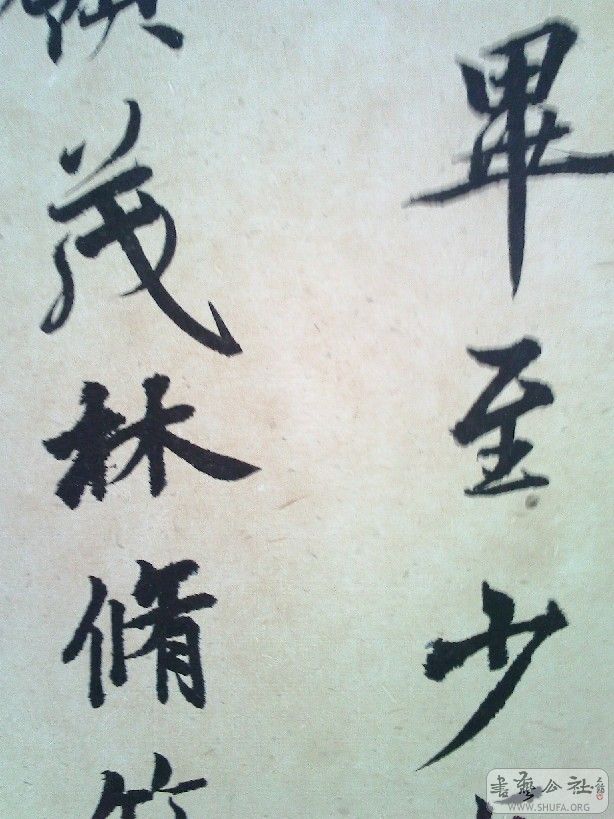 畢至少
領茂林脩竹
書藝公社
WWW.SHUFA.ORG